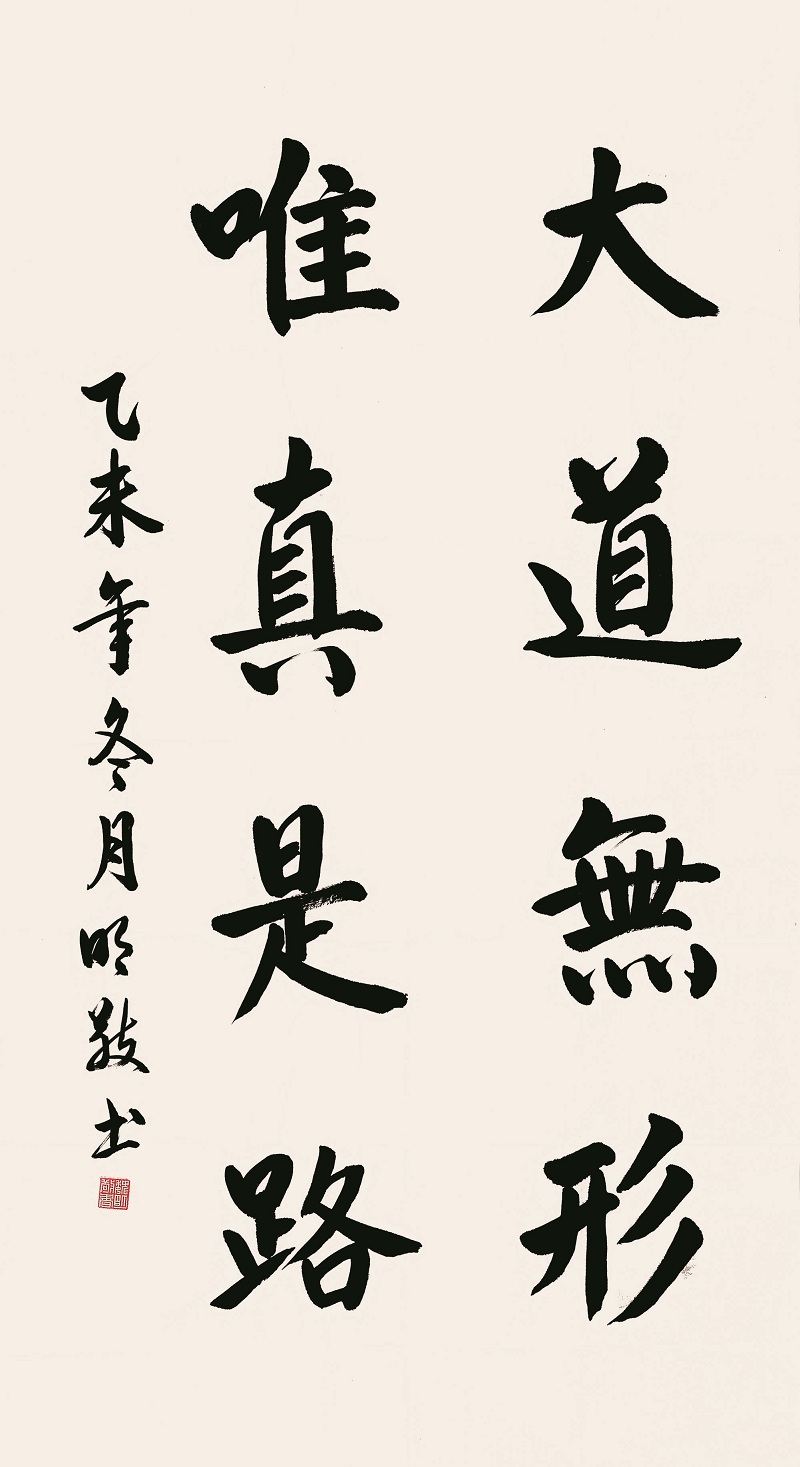 大道無形
唯真是路
乙未年冬月明敬书